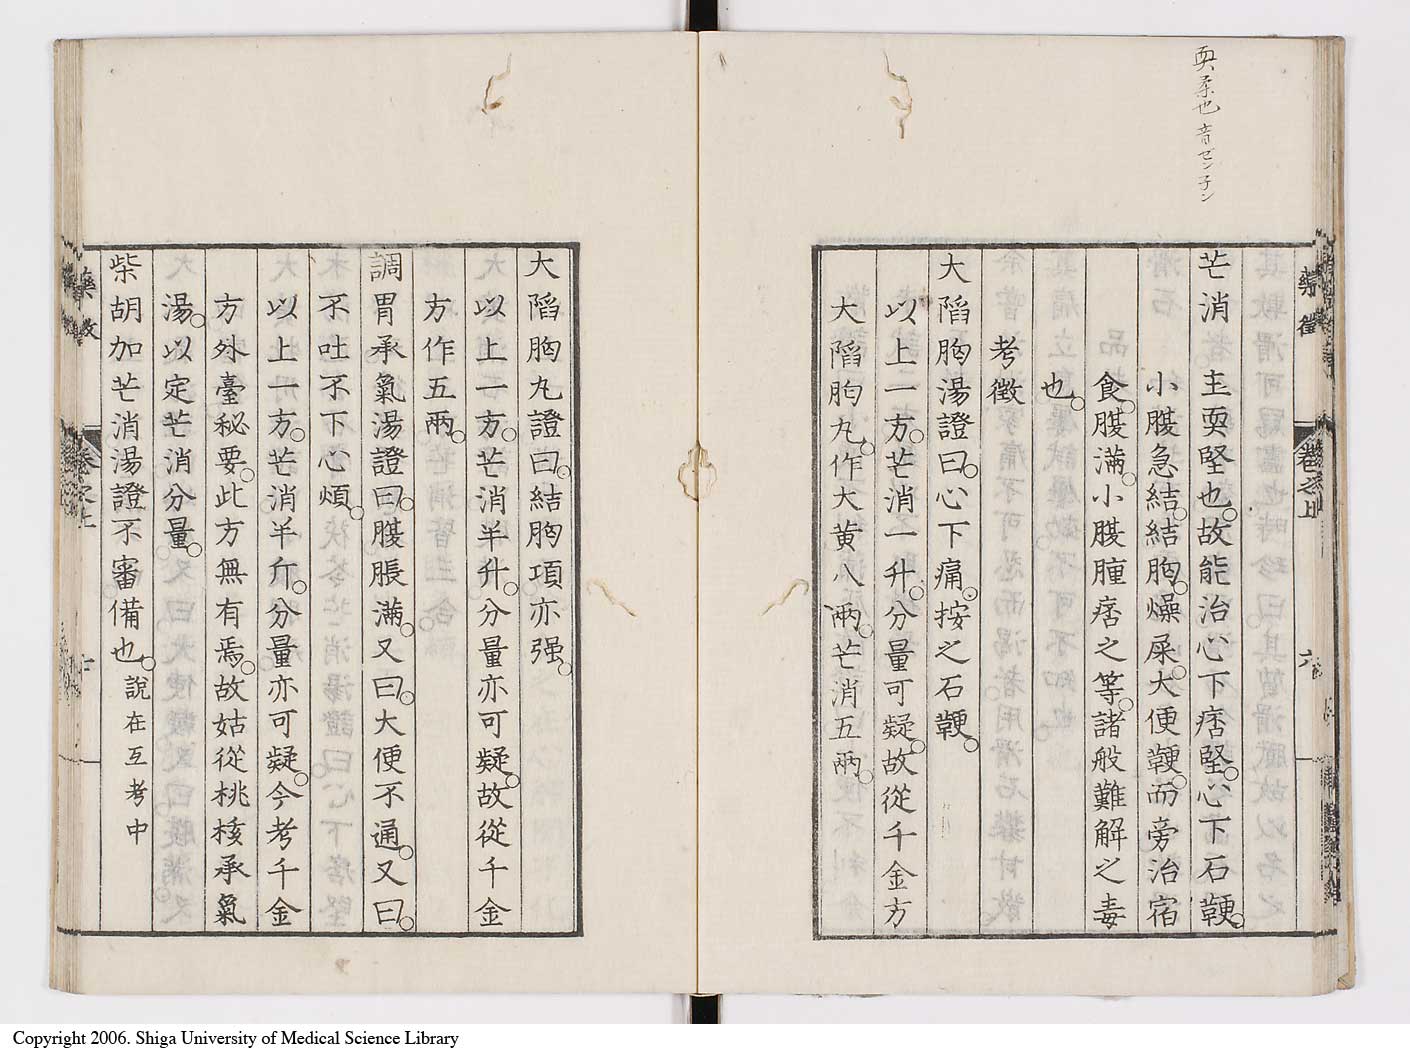 耎柔也 音ゼン子ン
藥徵 卷之上 六
芒消主耎堅也。故能治心下痞堅。心下石鞕。
小腹急結。結胸。燥屎。大便鞕。而旁治宿
食。腹滿。小腹腫痞之等。諸般難解之毒
也。
考徵
大陷胸湯證曰。心下痛。按之石鞕。
以上一方。芒消一升。分量可疑。故從千金方
大陷胸丸。作大黃八兩。芒消五兩。
大陷胸丸證曰。結胸項亦强。
以上一方。芒消半升。分量亦可疑。故從千金
方作五兩。
調胃承氣湯證曰。腹脹滿。又曰。大便不通。又曰。
不吐不下心煩。
以上一方。芒消半斤。分量亦可疑。今考千金
方外臺秘要。此方無有焉。故姑從桃核承氣
湯。以定芒消分量。
柴胡加芒消湯證不審備也。說在互考中
藥徵 卷之上 七
Copyright 2006. Shiga University of Medical Science Library